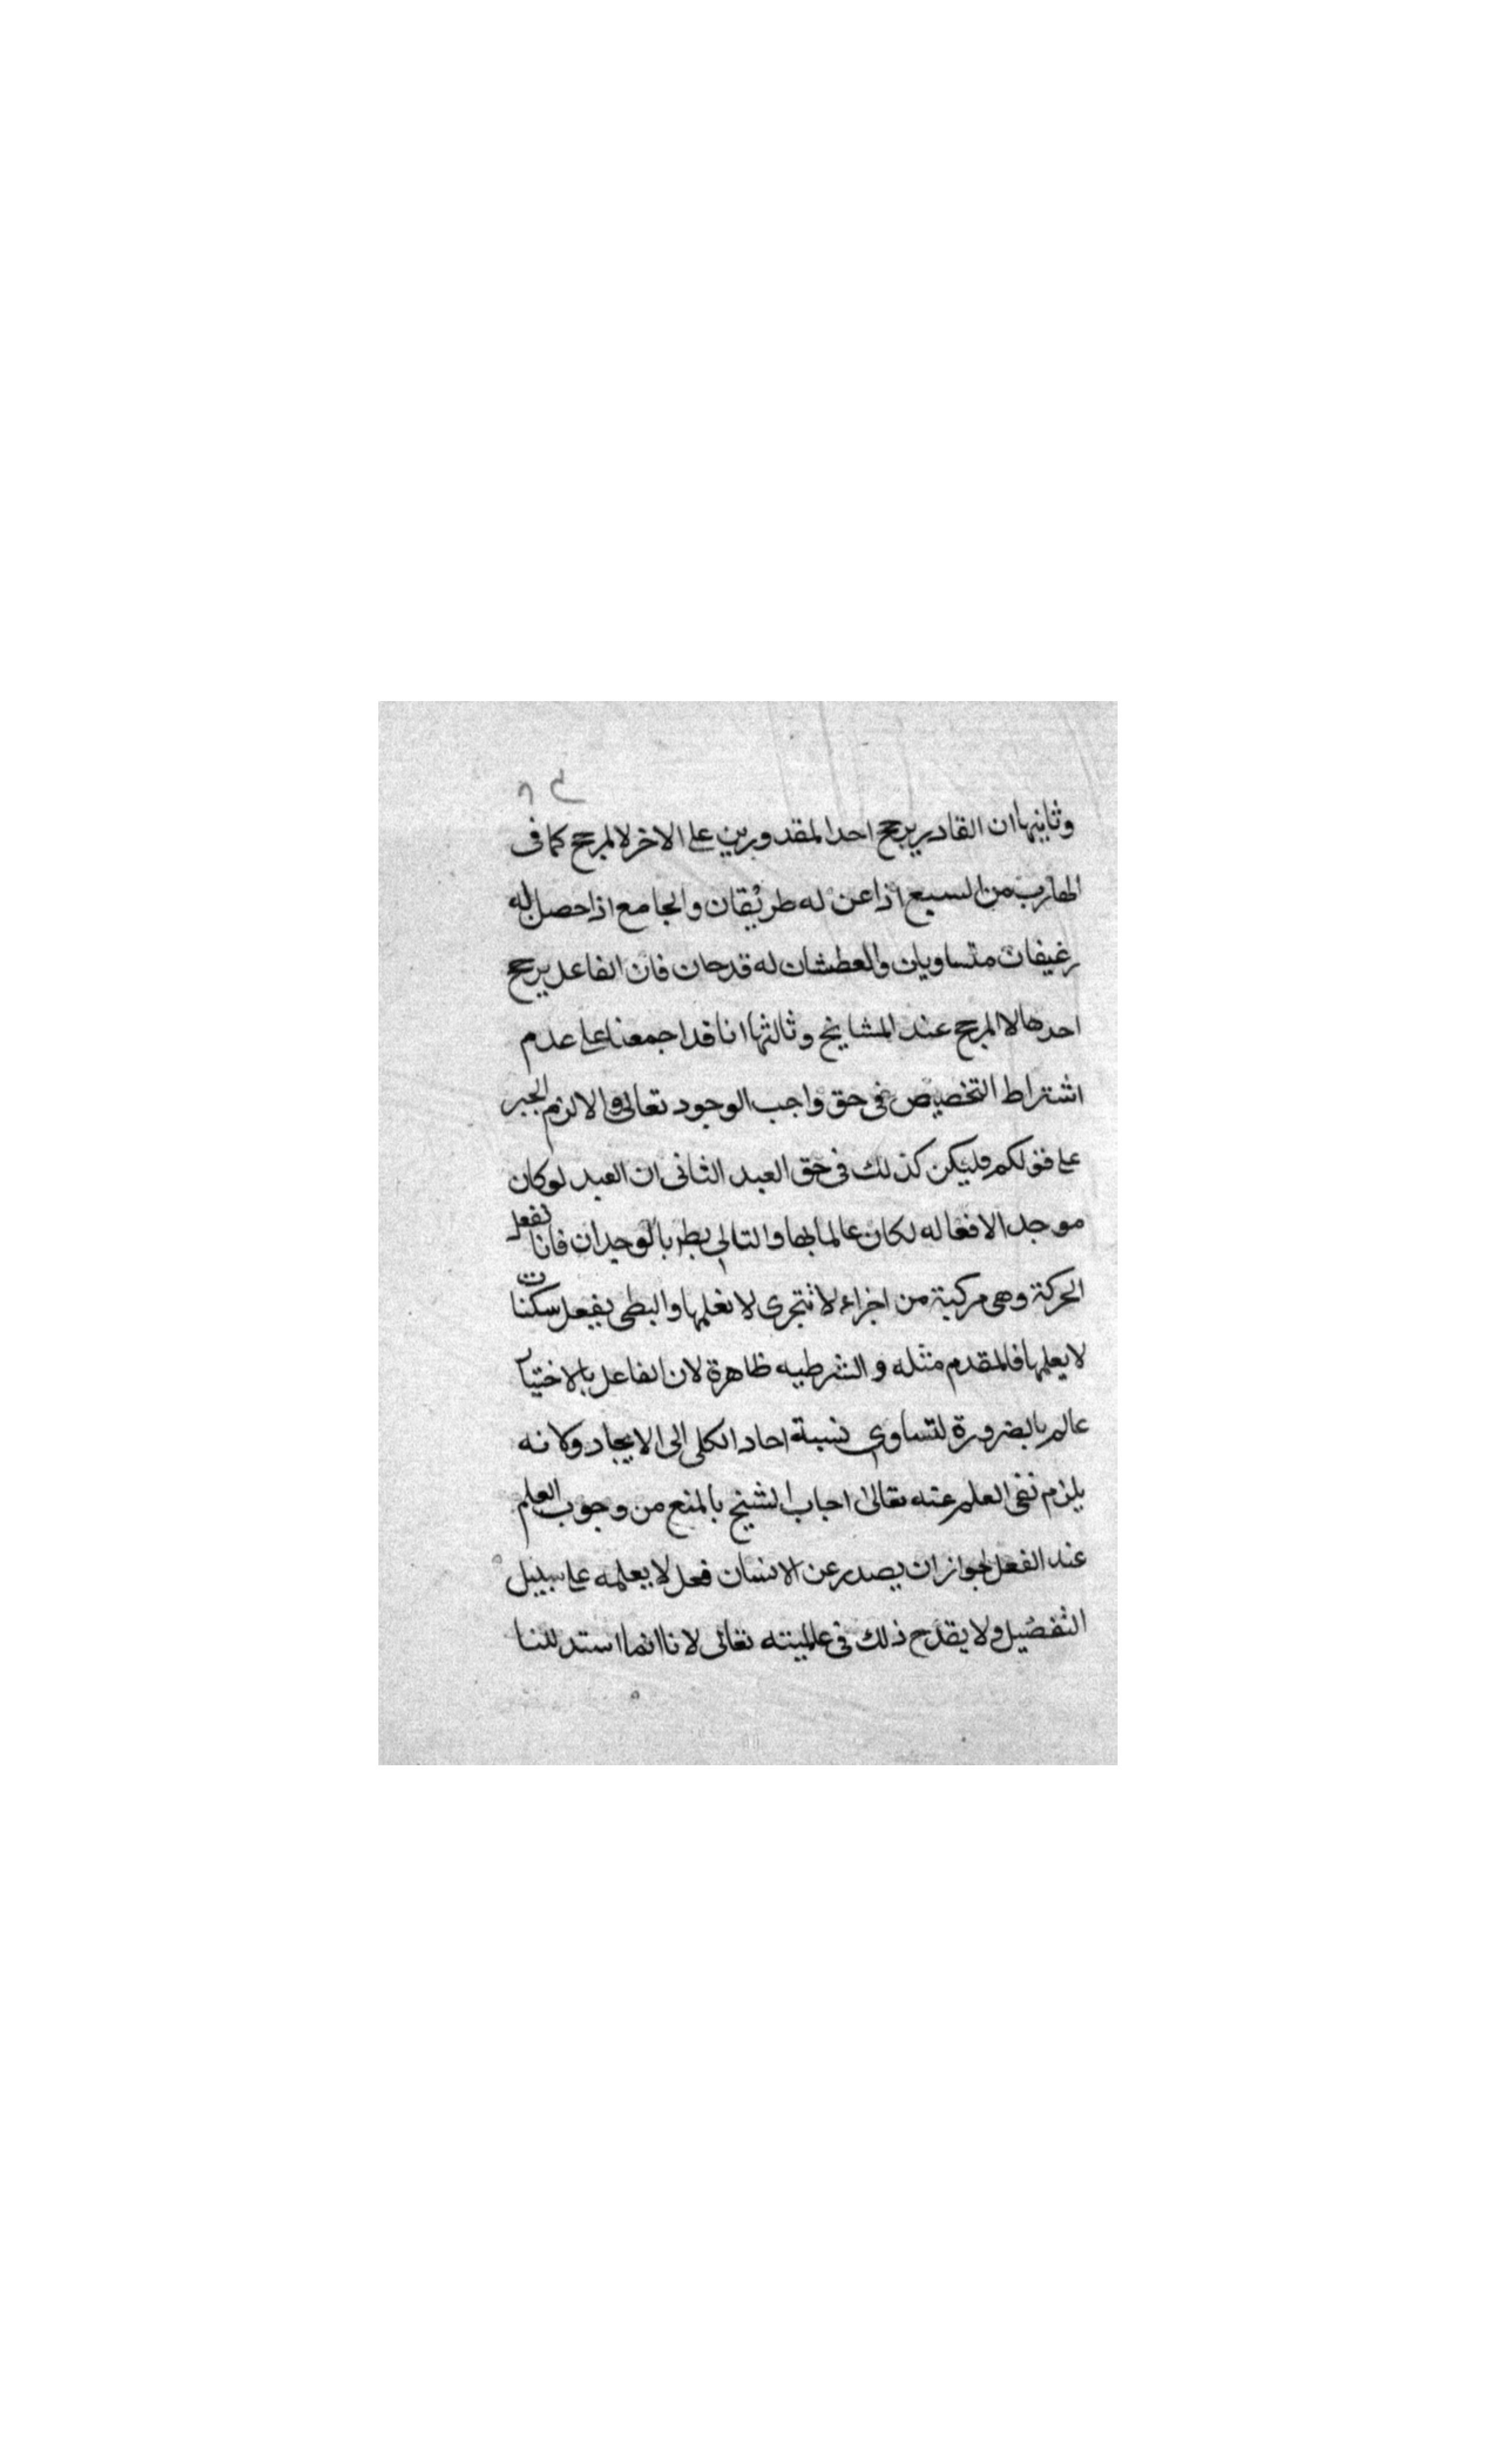 وثانيها ان القادر يرجح احد المقدورين على الاخر لا لمرجح كما فى
الهارب من السبع اذا عن له طريقان والجامع اذا حصل له
رغيفان متساويان والعطشان له قدحان فان الفاعل يرجح
احدها لا لمرجح عند المشايخ وثالثها انا قد اجمعنا على عدم
اشتراط التخصيص فى حق واجب الوجود تعالى والا لزم الجبر
على قولكم فليكن كذلك فى حق العبد الثانى ان العبد لو كان
موجدا لافعاله لكان عالما بها والتالى بط بالوجدان فانا نفعل
الحركة وهى مركبة من اجزاء لا تتجرى لا نعلمها والبطى يفعل سكنات
لا يعلمها فالمقدم مثله والشرطيه ظاهرة لان الفاعل بالاختيار
عالم بالضرورة لتساوى نسبة احاد الكلى الى الايجاد ولانه
يلزم نفى العلم عنه تعالى اجاب الشيخ بالمنع من وجوب العلم
عند الفعل لجواز ان يصدر عن الانسان فعل لا يعلمه على سبيل
التفصيل ولا يقدح ذلك فى عالميته تعالى لانا انما استدللنا